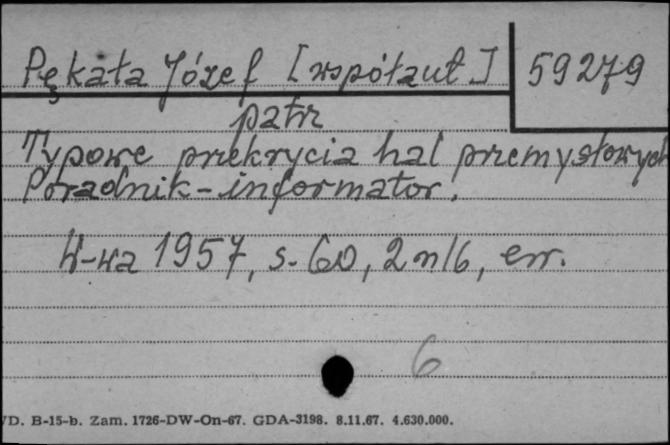 Pękała Józef [współaut.] 59279
patrz
Typowe przekrycia hal przemysłowych
Poradnik-informator.
W-wa 1957, s. 60, 2 nlb, err.
6
D. B-15-b. Zam. 1726-DW-On-67. GDA-3198. 8.11.67. 4.630.000.